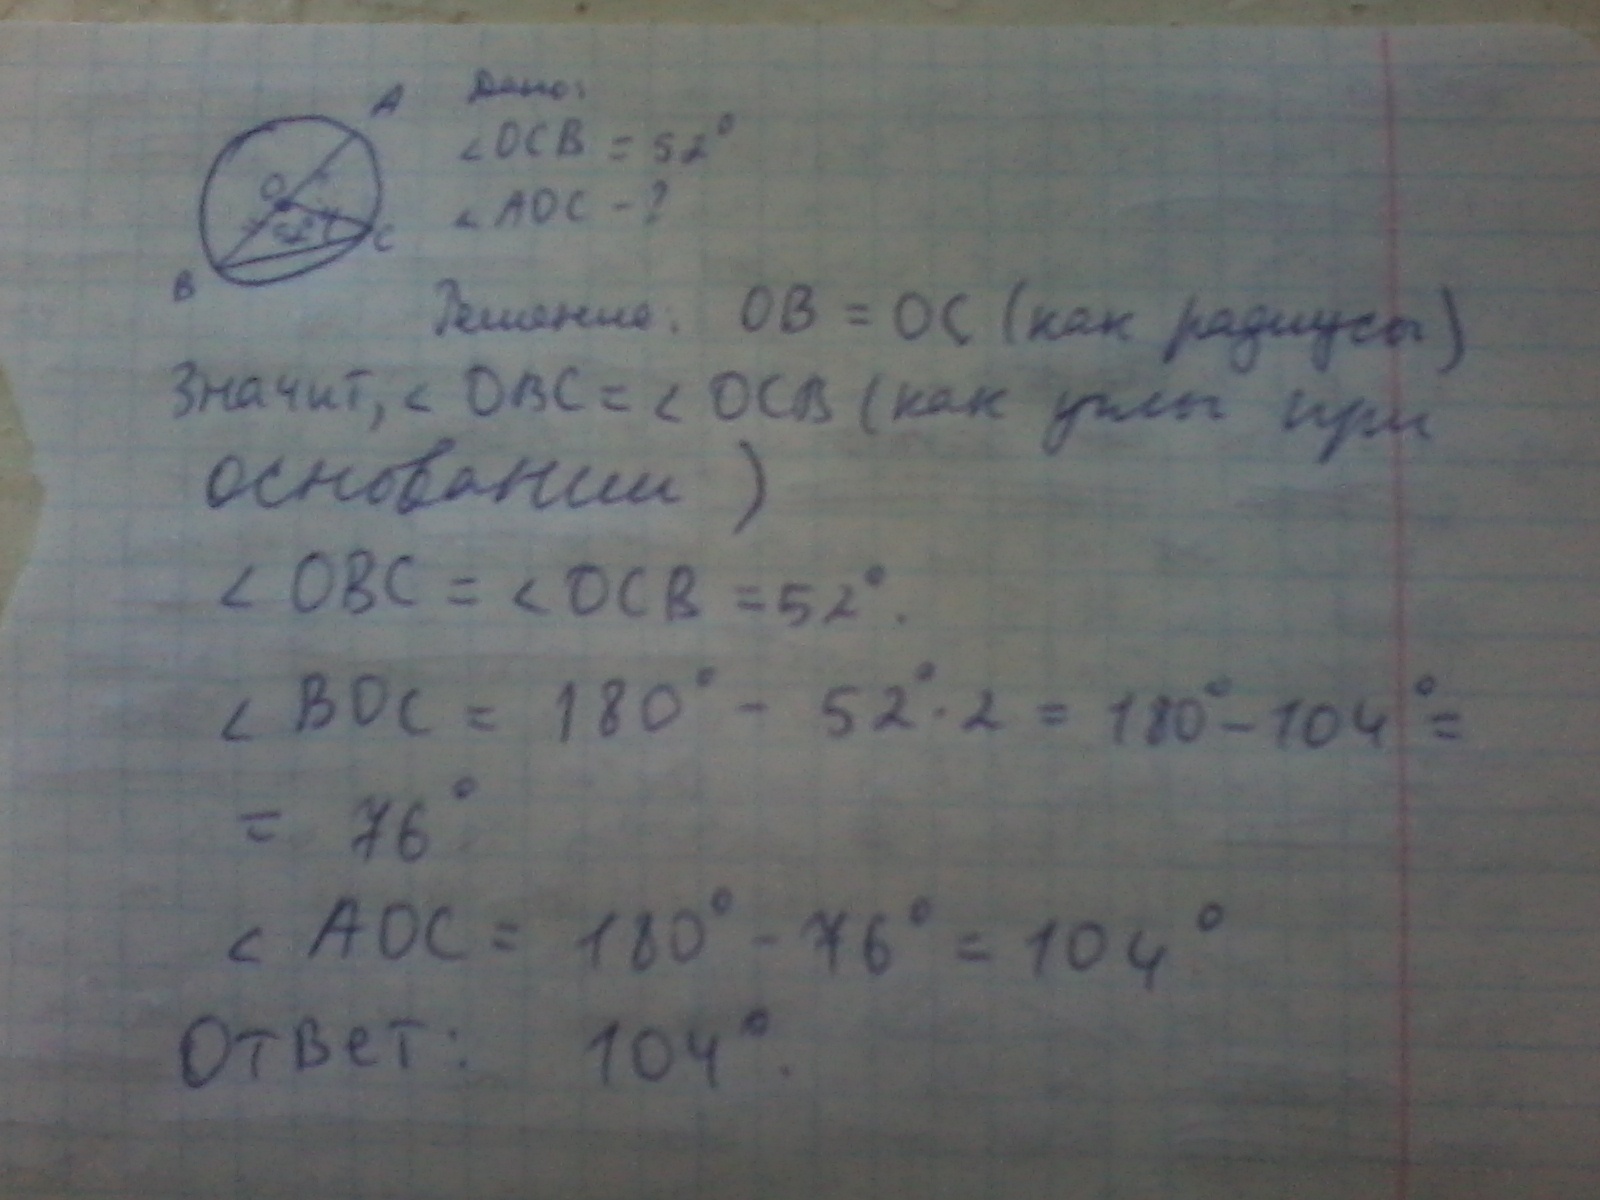 A
Дано:
∠OCB = 52°
∠AOC - ?
O
52°
C
B
Решение: OB = OC (как радиусы)
Значит, ∠OBC = ∠OCB (как углы при
основании)
∠OBC = ∠OCB = 52°.
∠BOC = 180° - 52°·2 = 180° - 104° =
= 76°
∠AOC = 180° - 76° = 104°
Ответ: 104°.